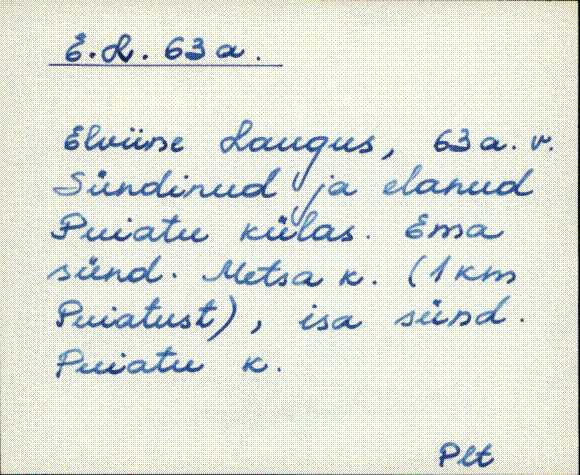 E. L. 63 a.
Elviine Laugus, 63 a. v.
Sündinud ja elanud
Puiatu külas. Ema
sünd. Metsa k. (1 km
Puiatust), isa sünd.
Puiatu k.
Plt